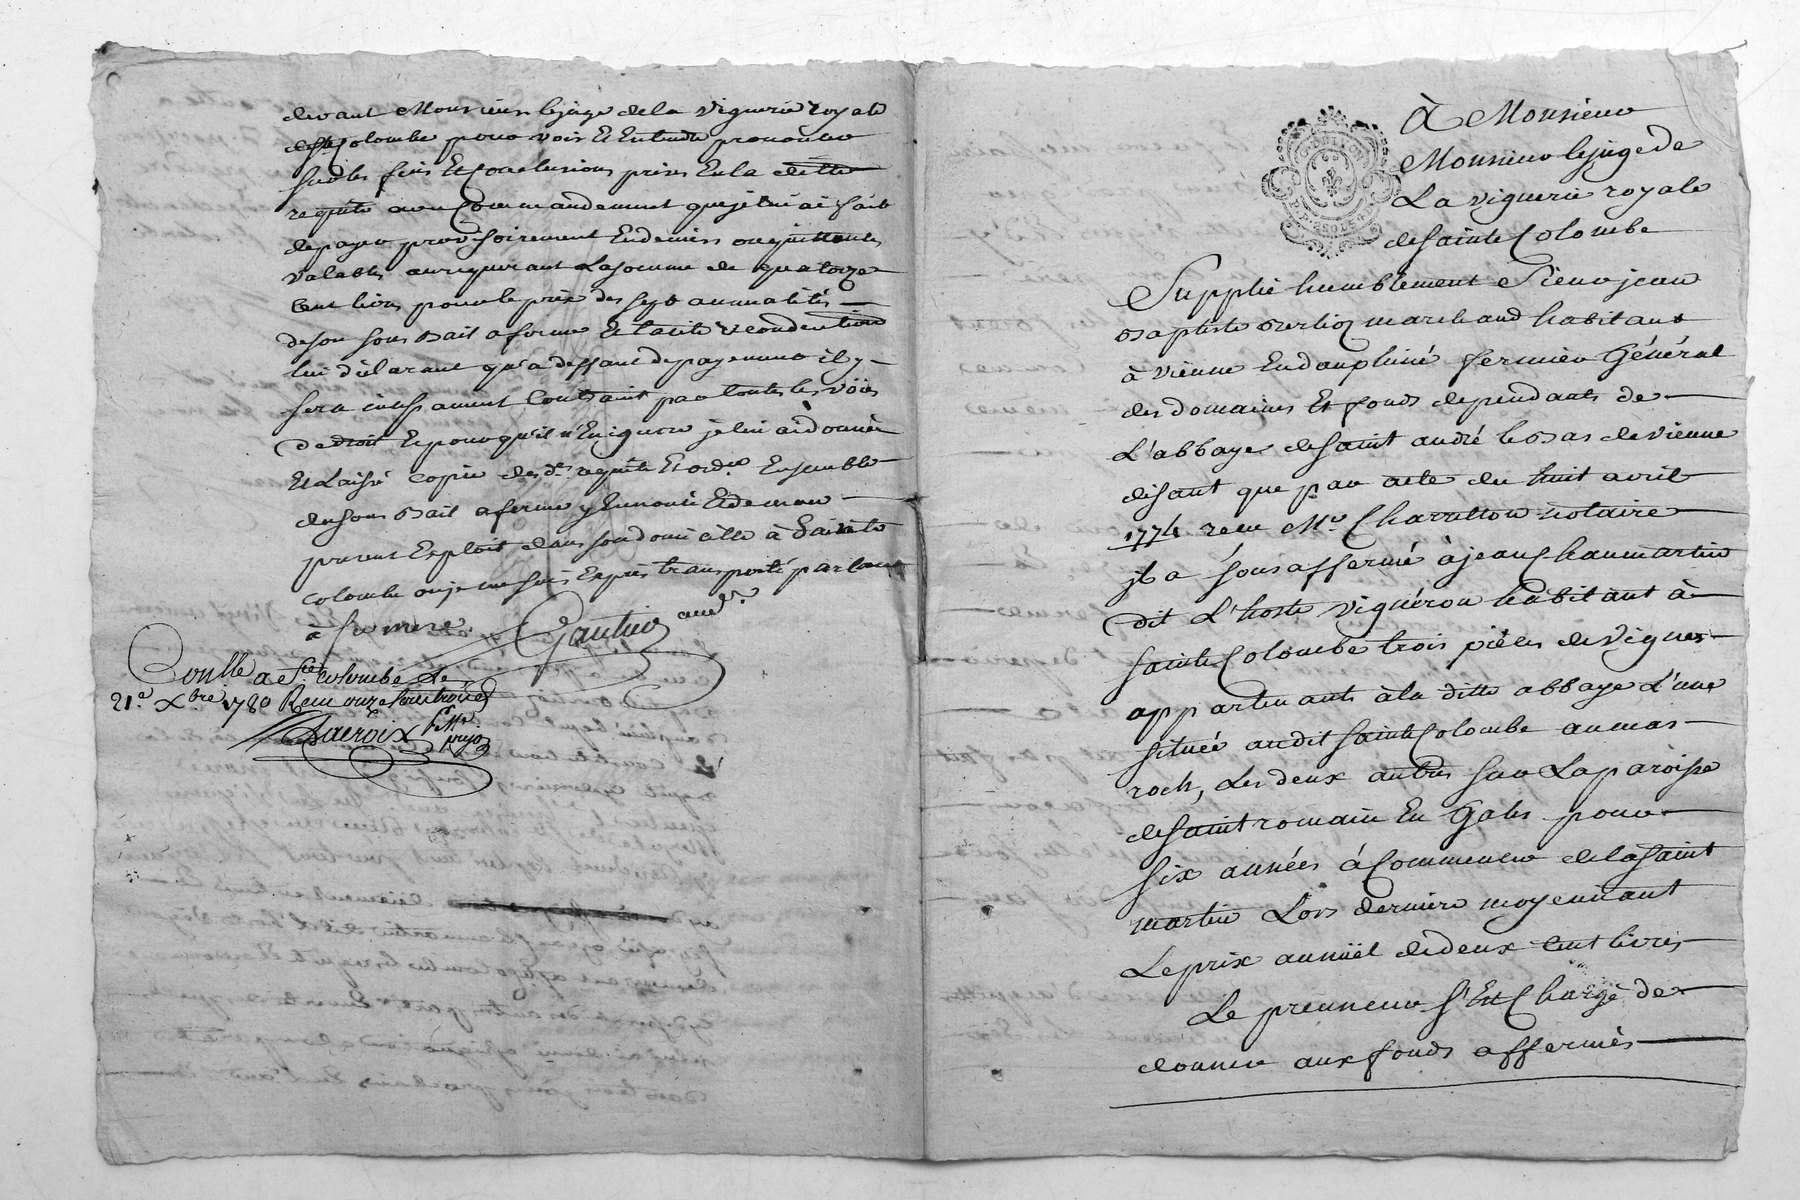 devant Monsieur le juge de la viguerie royale
de Ste Colombe pour voir Et Entendre prononcer
sur les fins Et Conclusions prises En la ditte
requete avec Commandement que je lui ai fait
de payer provisoirement En deniers ou quittances
valables au requerant La somme de quatorze
Cent livres pour le prix des sept annualités
de son sous Bail a ferme Et tacite reconduction
lui déclarant qu'a deffaut de payement il y
sera incessament Contraint par toutes les voies
de droit Et pour qu'il n'En ignore je lui ai donnée
Et Laissé copie des dts requete Et ordce Ensemble
du sous Bail a ferme y Ennoncé Et de mon
present Exploit dans son domicille à Sainte
Colombe ou je me suis Exprès transporté parlant
à sa mere. Gautier
Conlle a Ste Colombe le
21e Xbre 1780 Reçu onze sous trois d
Lacroix
À Monsieur
Monsieur le juge de
La viguerie royale
de Sainte Colombe
Supplie humblement Sieur jean
Baptiste Berlioz marchand habitant
à vienne En dauphiné fermier Général
des domaines Et fonds dependants de
L'abbaye de Saint andré le Bas de vienne
disant que par acte du huit avril
1774 recu Me Charreton notaire
il a sous affermé à jean Chaumartin
dit L'hoste vigneron habitant à
Sainte Colombe trois pièces de vignes
appartenants à la ditte abbaye L'une
située au dit Sainte Colombe au mas
roch, Les deux autres sur La paroisse
de Saint romain En Gales pour
six années à Commencer de la Saint
martin Lors derniere moyennant
Le prix annuël de deux cent livres
Le preneur s'Est Chargé de
donner aux fonds affermés